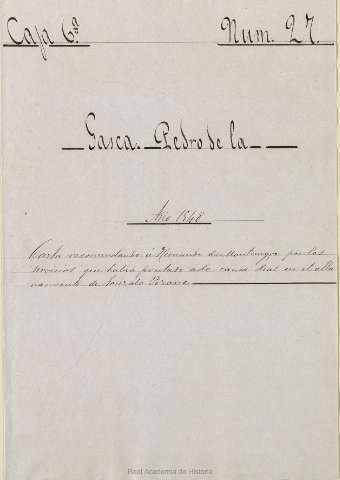 Caja 6.ª Num. 27.
Gasca. Pedro de la
Año 1548
Carta recomendando á Hernando de Montenegro por los
servicios que había prestado a la causa Real en el alla
namiento de Gonzalo Pizarro
Real Academia de Historia